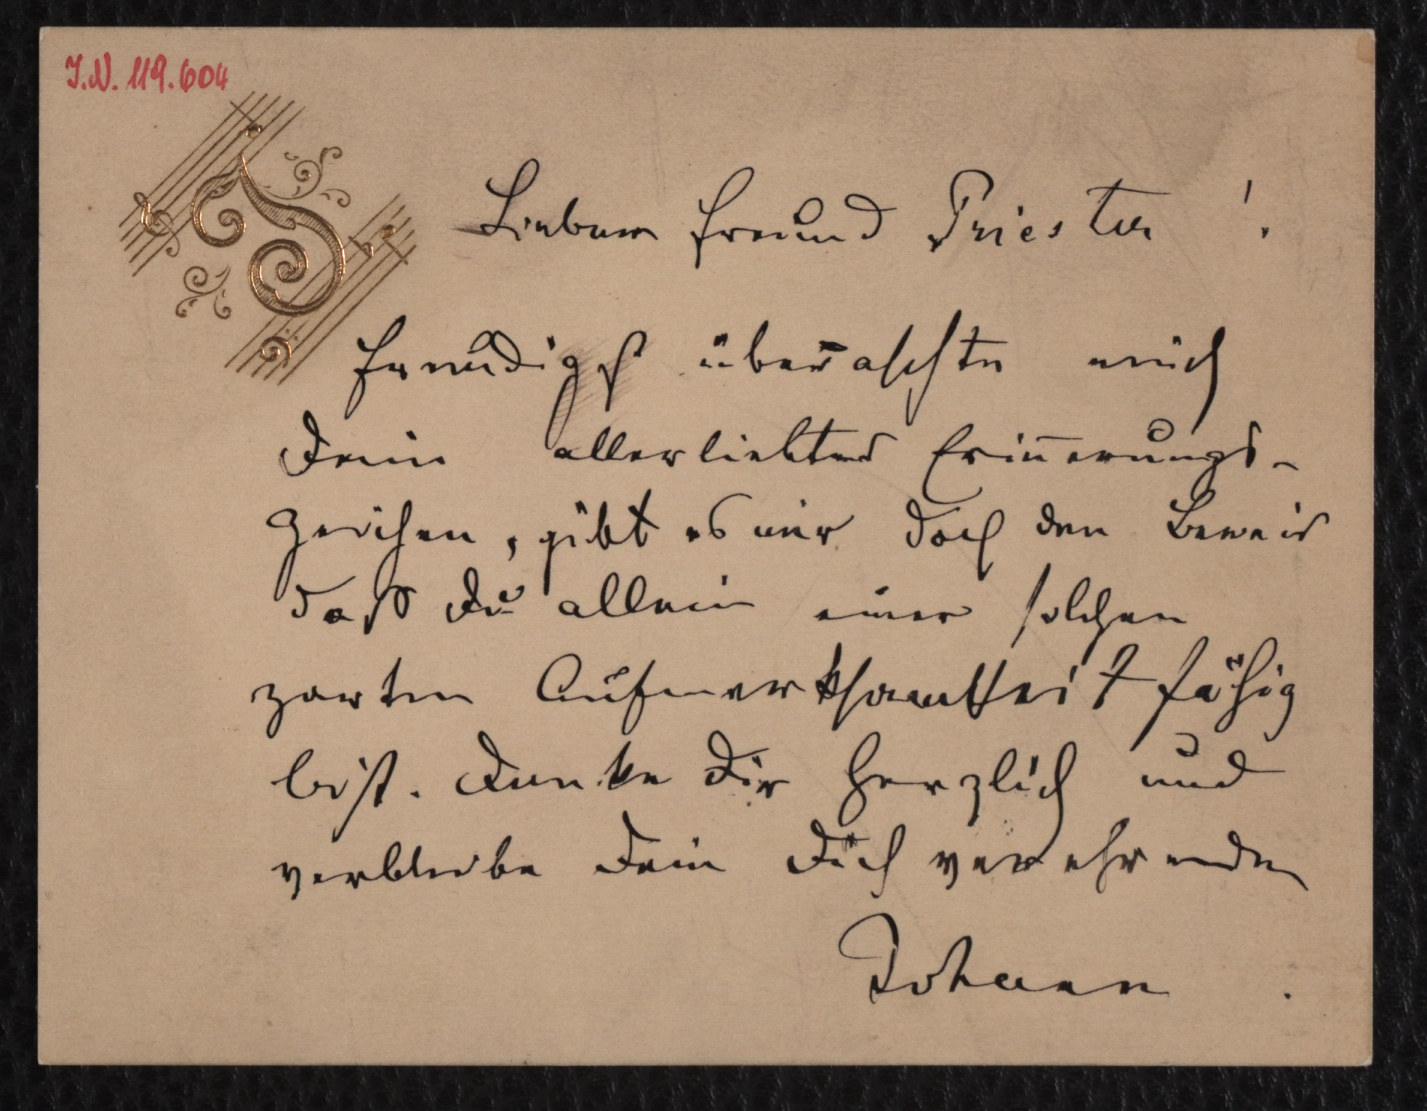 I.N. 119.604
Lieber Freund Priester!
Freudigst überraschte mich
Dein allerliebstes Erinnerungs-
zeichen, gibt es mir doch den Beweis
daß Du allein einer solchen
zarten Aufmerksamkeit fähig
bist. Danke Dir herzlich und
verbleibe Dein Dich verehrender
Johann